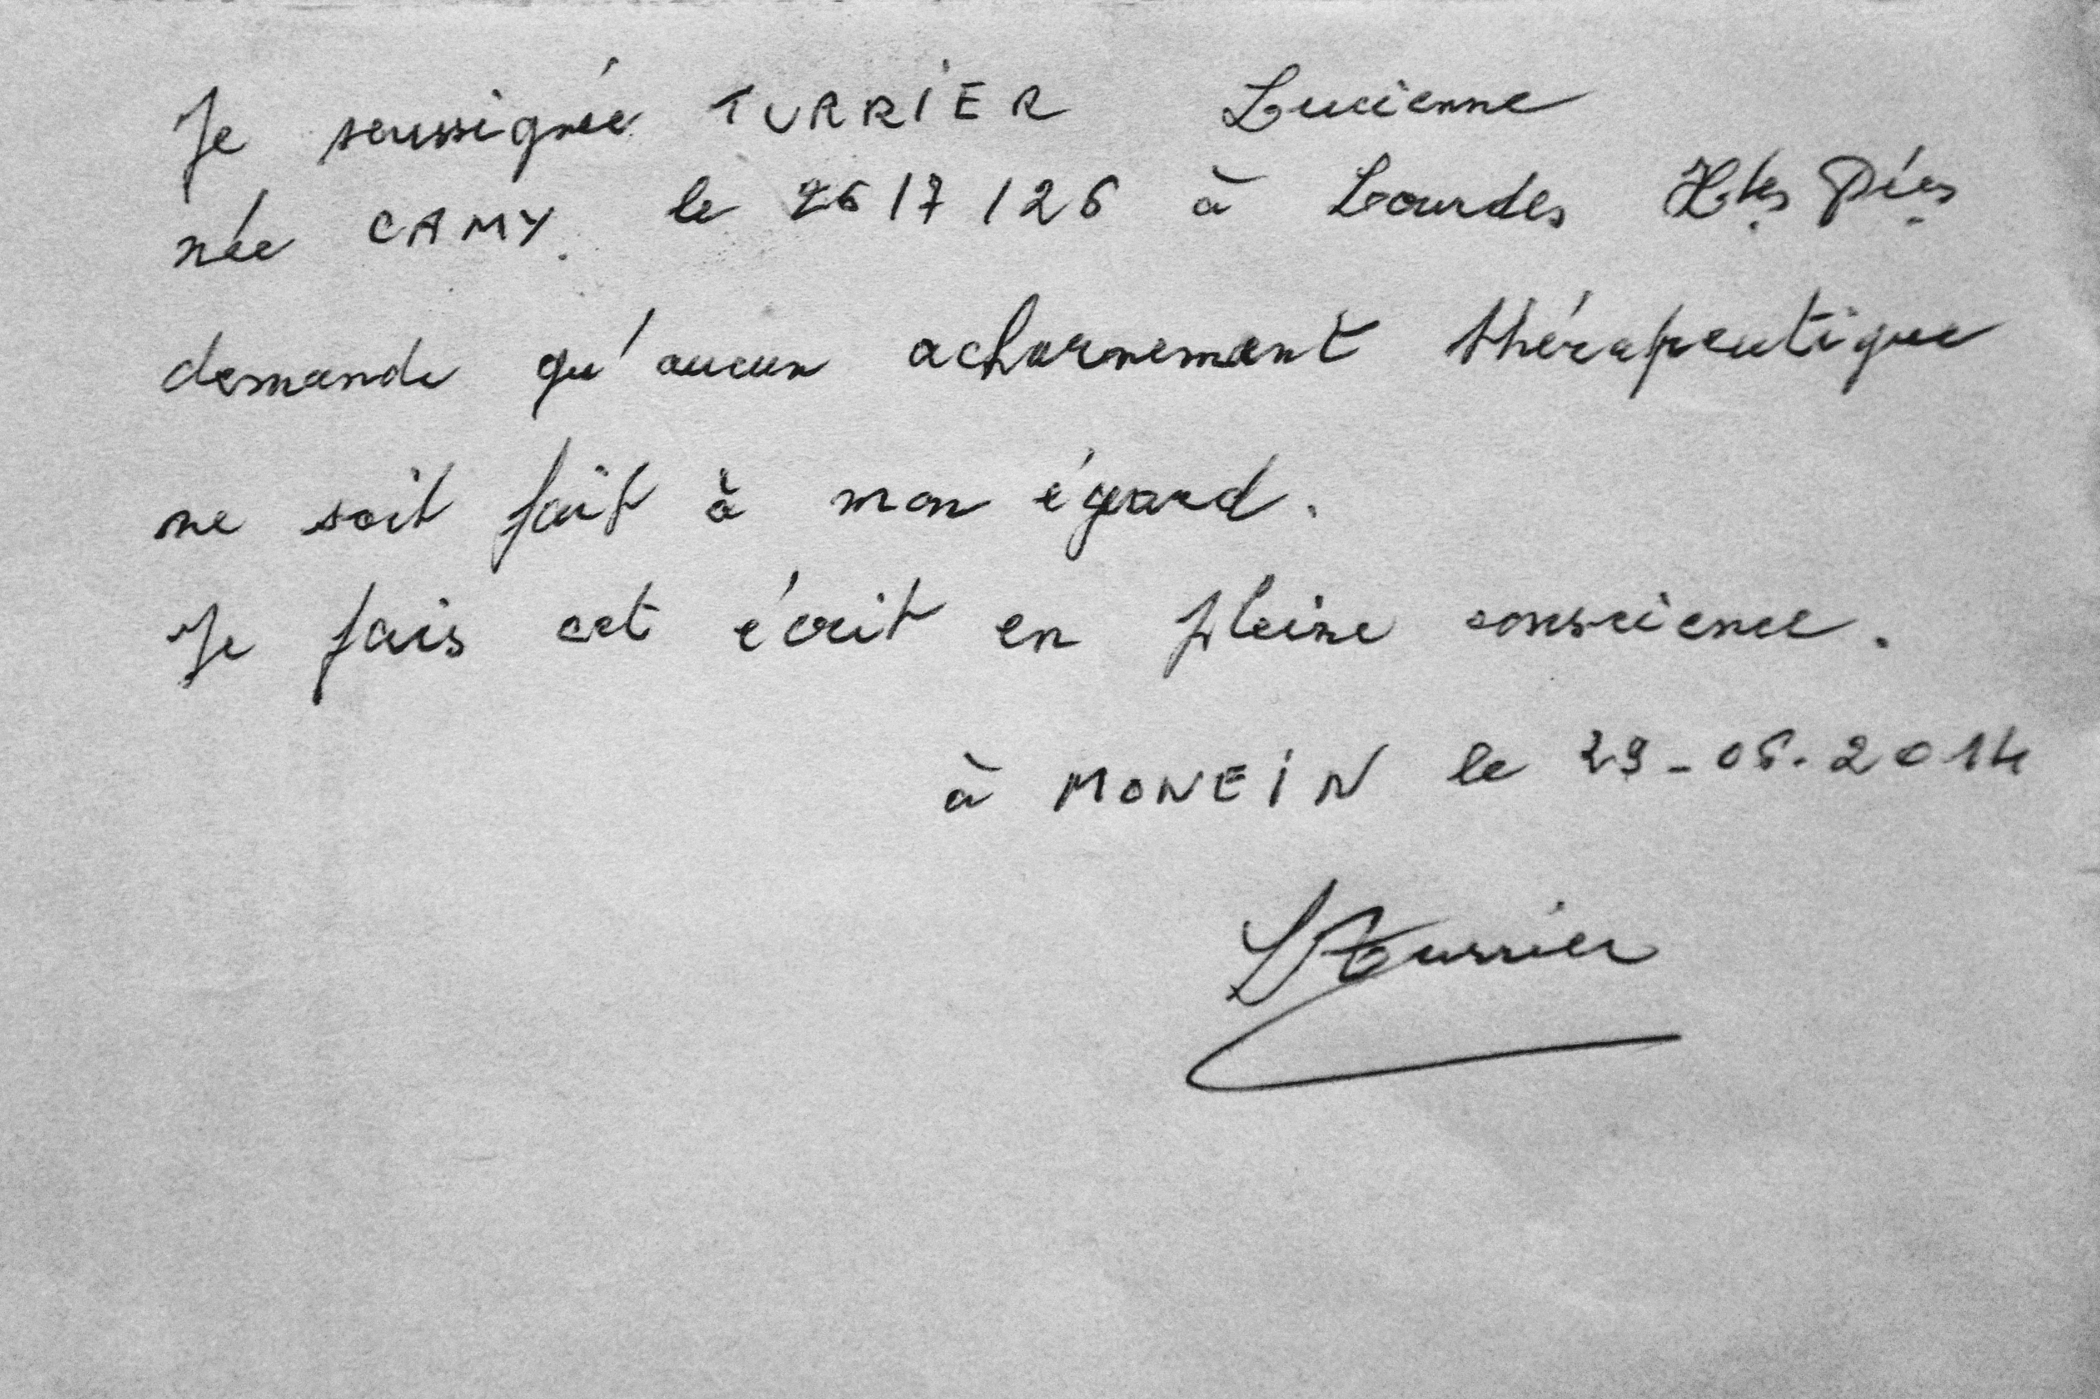 Je soussignée TURRIER Lucienne
née CAMY. le 26/7/26 à Lourdes Htes Pées
demande qu'aucun acharnement thérapeutique
ne soit fait à mon égard.
Je fais cet écrit en pleine conscience.
à MONEIN le 29-06.2014
LTurrier